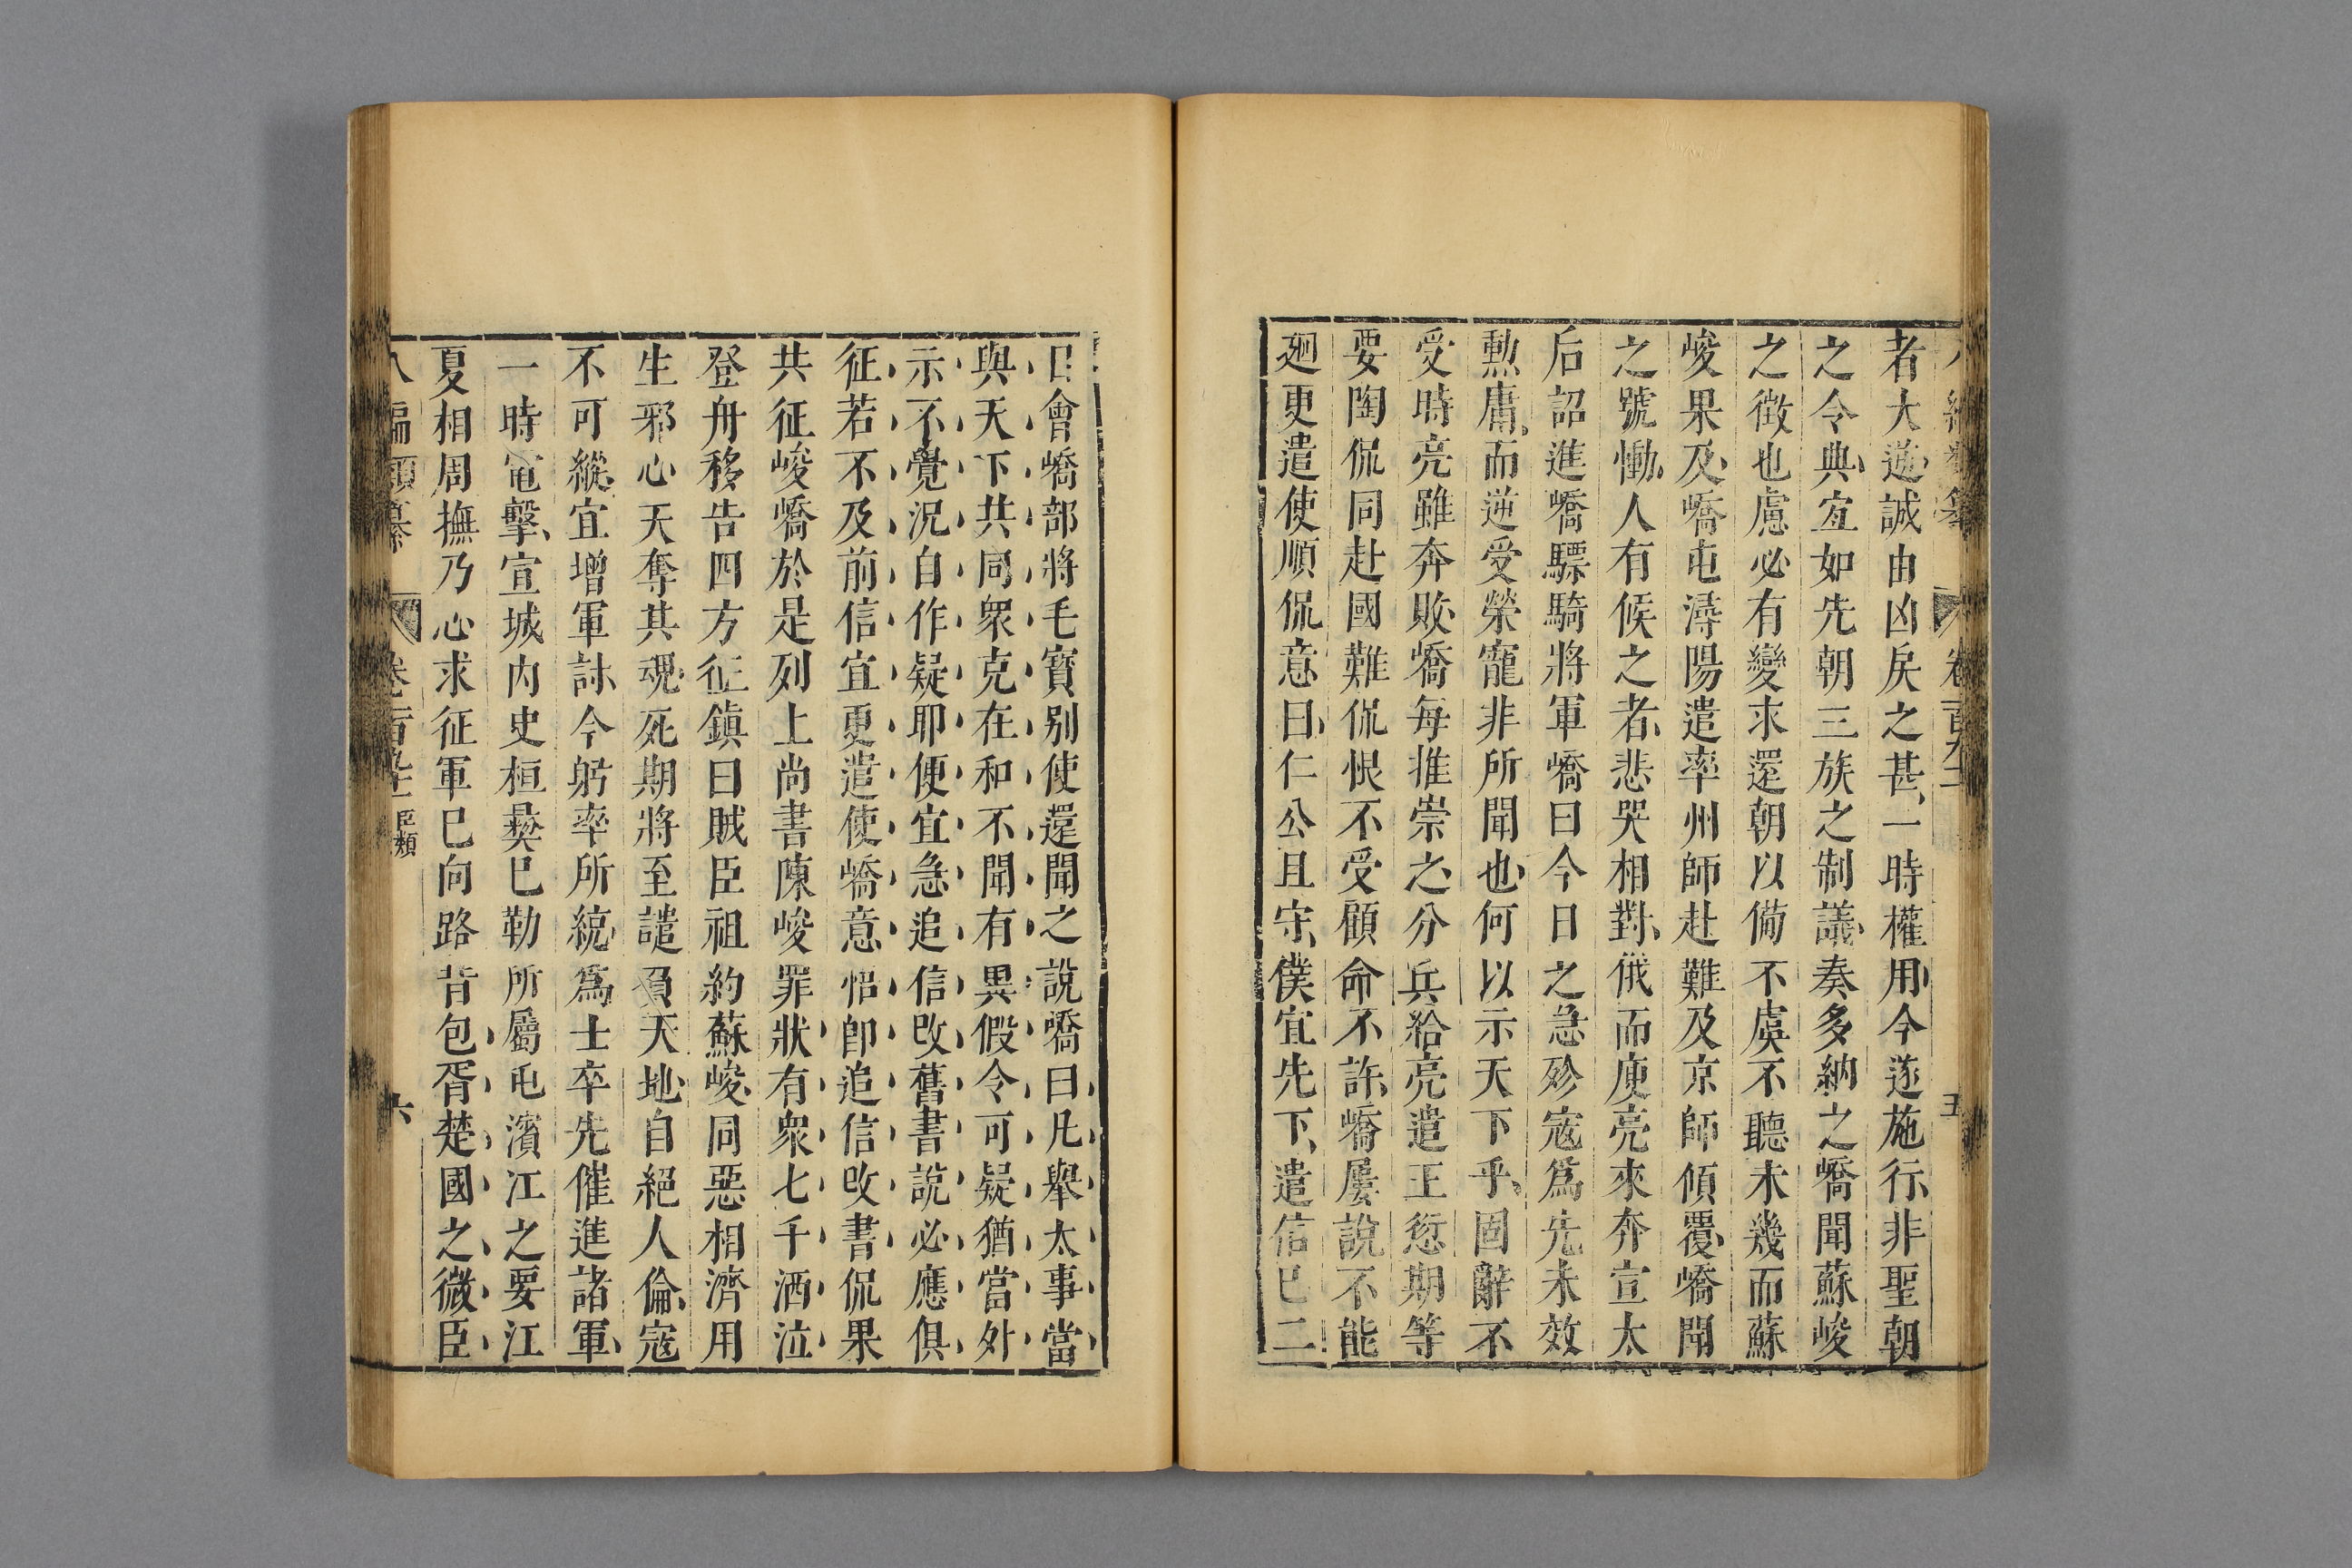 者大逆誠由凶戾之甚一時權用今遂施行非聖朝
之令典宜如先朝三族之制議奏多納之嶠聞蘇峻
之徵也慮必有變求還朝以備不虞不聽未幾而蘇
峻果及嶠屯潯陽遣率州師赴難及京師傾覆嶠聞
之號慟人有候之者悲哭相對俄而庾亮來奔宣太
后詔進嶠驃騎將軍嶠曰今日之急殄寇爲先未效
勲庸而逆受榮寵非所聞也何以示天下乎固辭不
受時亮雖奔敗嶠每推崇之分兵給亮遣王愆期等
要陶侃同赴國難侃恨不受顧命不許嶠屢說不能
廻更遣使順侃意曰仁公且守僕宜先下遣信已二
日會嶠部將毛寳别使還聞之說嶠曰凡舉太事當
與天下共同衆克在和不聞有異假令可疑猶當外
示不覺況自作疑耶便宜急追信改舊書說必應俱
征若不及前信宜更遣使嶠意悟卽追信改書侃果
共征峻嶠於是列上尚書陳峻罪狀有衆七千洒泣
登舟移告四方征鎮曰賊臣祖約蘇峻同惡相濟用
生邪心天奪其魂死期將至譴負天地自絕人倫寇
不可縱宜增軍討今躬率所統爲士卒先催進諸軍
一時電擊宣城内史桓彝已勒所屬屯濱江之要江
夏相周撫乃心求征軍已向路昔包胥楚國之微臣
八編類纂 卷一百 臣類 六